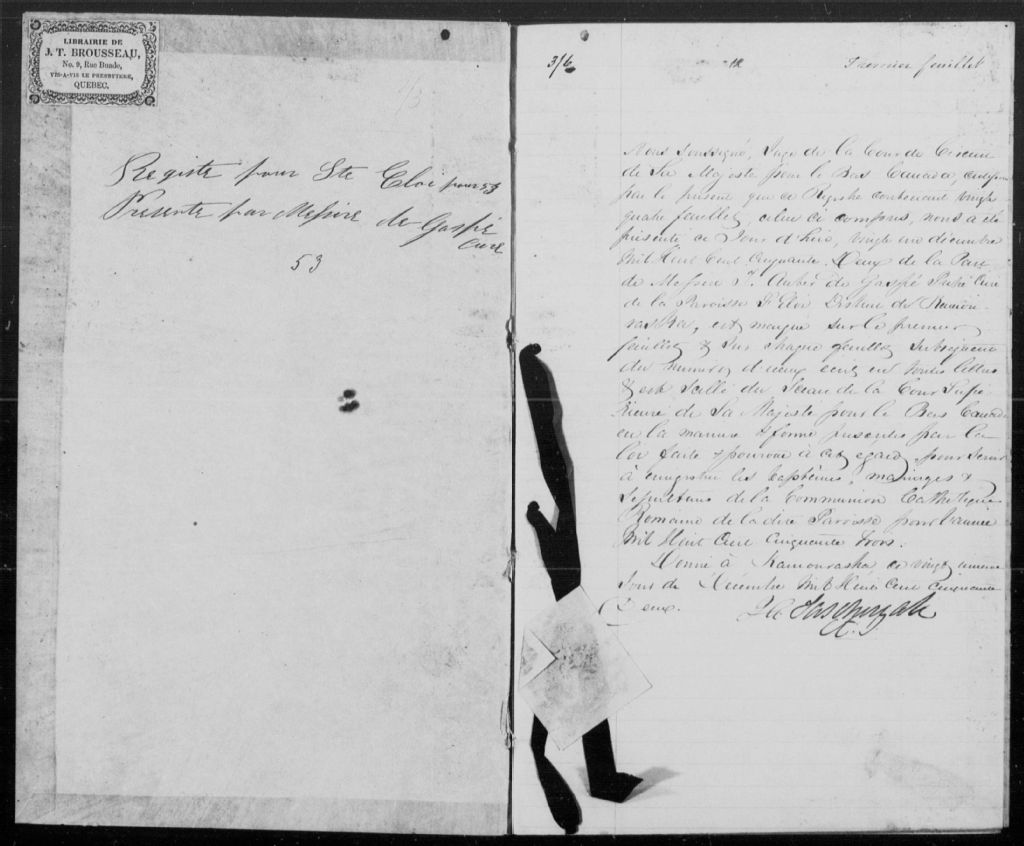 LIBRAIRIE DE
J. T. BROUSSEAU,
No. 9, Rue Buade,
VIS-A-VIS LE PRESBYTERE,
QUEBEC.
Registre pour Ste Eloi pour 53
Presenté par Messire de Gaspé
Curé
53
3/6
Premier feuillet
Nous soussigné, Juge de la Cour de Circuit
de Sa Majesté pour le Bas Canada, certifions
par le présent que ce Registre contenant vingt
quatre feuillets, celui ci compris, nous a été
présenté ce Jour d'hui, vingt une décembre
Mil Huit Cent Cinquante Deux de la Part
de Messire Ps. Aubert de Gaspé Prêtre Curé
de la Paroisse St Eloi District de Kamou-
raska, est marqué sur le premier
feuillet & sur chaque feuillet subséquent
du numéro d'iceux écrit en toutes lettres
& est scellé du Sceau de la Cour Supé
rieure de Sa Majesté pour le Bas Canada
en la manière & forme prescrites par la
loi faite & pourvue à cet égard, pour servir
à enregistrer les baptêmes, mariages &
Sepultures de la Communion Catholique
Romaine de la dite Paroisse pour l'année
Mil Huit Cent Cinquante trois.
Donné à Kamouraska, ce vingt unième
Jour de Décembre Mil Huit Cent Cinquante
Deux.
Taschereau